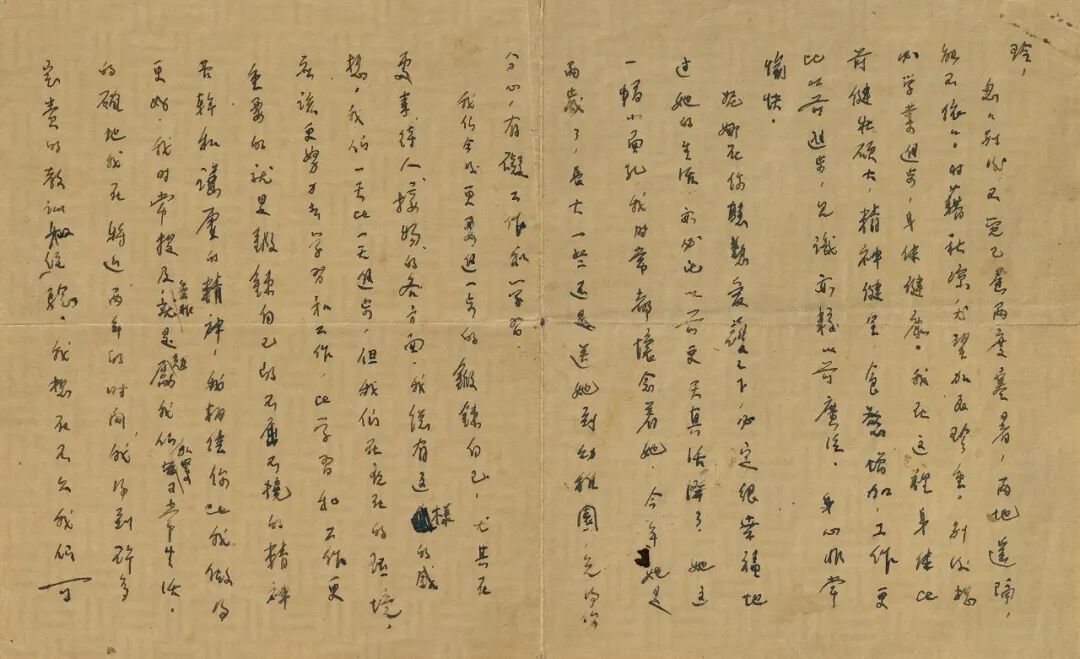 玲，
匆匆别后不觉已蕉两度寒暑，两地遥隔，
能不依依。时藉秋凉，尤望加意珍重。别后想
必学业进步，身体健康。我在这里身体比
前健壮硕大，精神健足，食慾增加，工作更
比以前进步，见识亦较以前广泛。身心非常
愉快。
妮娜在你慇懃爱护之下，必定很幸福地
过她的生活而必比以前更天真活泼了。她这
一幅小面孔，我时常都怀念着她。今年她是
两岁了，长大一些还是送她到幼稚园，免得你
分心，有碍工作和学习。
我们今后更要进一步的锻鍊自己，尤其在
处事，待人，接物，的各方面，我总有这样的感
想，我们一天比一天进步，但我们在现在的环境，
应该更努力去学习和工作，比学习和工作更
重要的就是锻鍊自己的不屈不挠的精神
苦幹和谦虚的精神，我相信你比我做得
更好。我时常提及，就是我们日常生活。
的确地我在将近两年的时间，我得到许多
宝贵的教训和经验。我想在不久我们可